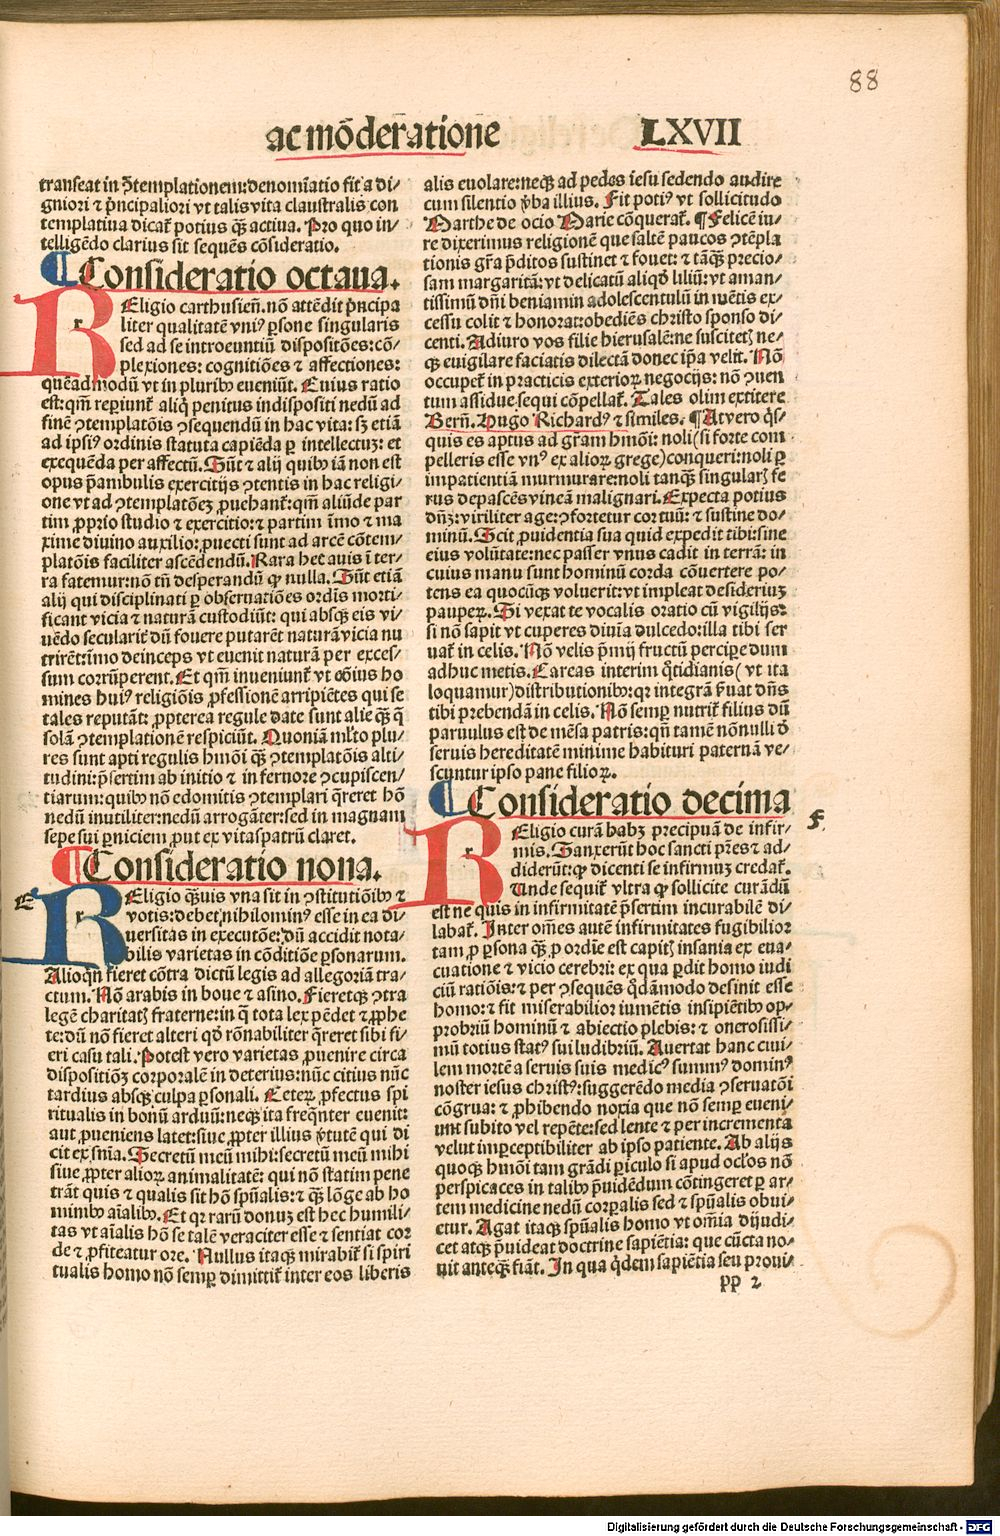 88
ac mōderatione LXVII
transeat in ꝯtemplationem:denomīatio fit a di/
gniori ⁊ pͥncipaliori vt talis vita claustralis con
templatiua dicat᷑ potius qͣꝫ actiua. Pro quo in/
telligēdo clarius sit sequēs cōsideratio.
¶Consideratio octaua.
REligio carthusieñ.nō attēdit pͥncipa
liter qualitatē vniꝰ ꝑsone singularis
sed ad se introeuntiū dispositōes:cō/
plexiones: cognitiōes ⁊ affectiones:
quēadmodū vt in pluribꝰ eueniūt. Cuius ratio
est:qm̄ reperiunt᷑ aliqͥ penitus indispositi nedū ad
finē ꝯtemplatōis ꝯsequendū in hac vita:sꝫ etiā
ad ipsiꝰ ordinis statuta capiēda ꝑ intellectuꝫ: et
exequēda per affectū. Sūt ⁊ alij quibꝰ iā non est
opus p̄ambulis exercitijs ꝯtentis in hac religi/
one vt ad ꝯtemplatōeꝫ ꝓuehant᷑:qm̄ aliūde par
tim ꝓprio studio ⁊ exercitio:⁊ partim īmo ⁊ ma
xime diuino auxilio:ꝓuecti sunt ad arcē cōtem/
platōis faciliter ascēdendū. Rara hec auis ī ter/
ra fatemur:nō tn̄ desperandū ꝙ nulla. Sūt etiā
alij qui disciplinati ꝑ obseruatiōes ordīs morti/
ficant vicia ⁊ naturā custodiūt: qui absqꝫ eis vi/
uēdo secularit᷑ dū fouere putarēt naturā vicia nu
trirēt:īmo deinceps vt euenit naturā per exces/
sum corrūperent. Et qm̄ inueniunt᷑ vt oēius ho
mines huiꝰ religiōis ꝓfessionē arripiētes qui se
tales reputāt: ꝓpterea regule date sunt alie qͣꝫ q̄
solā ꝯtemplationē respiciūt. Quoniā ml̓to plu/
res sunt apti regulis hmōi qͣꝫ ꝯtemplatōis alti/
tudini:p̄sertim ab initio ⁊ in feruore ꝯcupiscen/
tiarum:quibꝰ nō edomitis ꝯtemplari qͥreret hō
nedū inutiliter:nedū arrogāter:sed in magnam
sepe sui ꝑniciem ꝓut ex vitaspatrū claret.
¶Consideratio nona.
E
REligio qͣuis vna sit in ꝯstitutiōibꝰ ⁊
votis:debet nihilominꝰ esse in ea di/
uersitas in executōe:dū accidit nota/
bilis varietas in cōditiōe ꝑsonarum.
Alioqn̄ fieret cōtra dictū legis ad allegoriā tra/
ctum. Nō arabis in boue ⁊ asino. Fieretqꝫ ꝯtra
legē charitatꝭ fraterne:in q̄ tota lex pēdet ⁊ ꝓphe
te:dū nō fieret alteri qd̓ rōnabiliter qͥreret sibi fi/
eri casu tali. Potest vero varietas ꝓuenire circa
dispositiōꝫ corporalē in deterius:nūc citius nūc
tardius absqꝫ culpa ꝑsonali. Ceteꝝ ꝓfectus spi
ritualis in bonū arduū:neqꝫ ita freqn̄ter euenit:
aut ꝓueniens latet:siue ꝓpter illius v̓tutē qui di
cit ex snīa. Secretū meū mihi:secretū meū mihi
siue ꝓpter alioꝝ animalitatē: qui nō statim pene
trāt quis ⁊ qualis sit hō spūalis:⁊ qͣꝫ lōge ab ho
minibꝰ aīalibꝰ. Et qꝛ rarū donuꝫ est hec humili/
tas vt aīalis hō se talē veraciter esse ⁊ sentiat cor
de ⁊ ꝓfiteatur ore. Nullus itaqꝫ mirabit᷑ si spiri
tualis homo nō semꝑ dimittit᷑ inter eos liberis
alis euolare:neqꝫ ad pedes iesu sedendo audire
cum silentio v̓ba illius. Fit potiꝰ vt sollicitudo
Marthe de ocio Marie cōquerat᷑. ¶Felicē iu/
re dixerimus religionē que saltē paucos ꝯtēpla
tionis gr̄a p̄ditos sustinet ⁊ fouet: ⁊ tāqͣꝫ precio/
sam margaritā: vt delicatū aliqd̓ liliū: vt aman/
tissimū dn̄i beniamin adolescentulū in mētis ex/
cessu colit ⁊ honorat:obediēs christo sponso di/
centi. Adiuro vos filie hierusalē:ne suscitetꝭ ne/
qꝫ euigilare faciatis dilectā donec ip̄a velit. Nō
occupet᷑ in practicis exterioꝝ negocijs: nō ꝯuen
tum assidue sequi cōpellat᷑. Tales olim extitere
Berñ. Hugo Richardꝰ ⁊ similes. ¶At vero qͥs/
quis es aptus ad gr̄am hmōi: noli (si forte com
pelleris esse vnꝰ ex alioꝝ grege) conqueri:noli ꝑ
impatientiā murmurare:noli tanqͣꝫ singularꝭ fe
rus depascēs vineā malignari. Expecta potius
dn̄ꝫ:viriliter age:ꝯfortetur cor tuū: ⁊ sustine do/
minū. Scit ꝓuidentia sua quid expedit tibi:sine
eius volūtate:nec passer vnus cadit in terrā: in
cuius manu sunt hominū corda cōuertere po/
tens ea quocūqꝫ voluerit:vt impleat desideriuꝫ
pauperꝝ. Si vexat te vocalis oratio cū vigilijs:
si nō sapit vt cuperes diuīa dulcedo:illa tibi ser
uat᷑ in celis. Nō velis p̄mij fructū percipe dum
adhuc metis. Careas interim qͦtidianis( vt ita
loquamur)distributionibꝰ:qꝛ integrā p̄uat dn̄s
tibi prebendā in celis. Nō semꝑ nutrit᷑ filius dū
paruulus est de mēsa patris:qn̄ tamē nōnulli ð
seruis hereditatē minime habituri paternā ve/
scuntur ipso pane filioꝝ.
¶Consideratio decima
F
REligio curā habꝫ precipuā de infir/
mis. Sanxerūt hoc sancti pr̄es ⁊ ad/
diderūt:ꝙ dicenti se infirmuꝫ credat᷑.
Unde sequit᷑ vltra ꝙ sollicite curādū
est ne quis in infirmitatē p̄sertim incurabilē di/
labat᷑. Inter om̄es autē infirmitates fugibilior
tam ꝓ ꝑsona qͣꝫ ꝓ ordīe est capitꝭ insania ex eua/
cuatione ⁊ vicio cerebri: ex qua ꝑdit homo iudi
ciū ratiōis:⁊ per ꝯsequēs qͦdāmodo desinit esse
homo:⁊ fit miserabilior iumētis insipiētibꝰ op/
probriū hominū ⁊ abiectio plebis: ⁊ onerosissi/
mū totius statꝰ sui ludibriū. Auertat hanc ciui/
lem mortē a seruis suis medicꝰ summꝰ dominꝰ
noster iesus christꝰ:suggerēdo media ꝯseruatōi
cōgrua: ⁊ ꝓhibendo noxia que nō semꝑ eueni/
unt subito vel repēte:sed lente ⁊ per incrementa
velut imꝑceptibiliter ab ipso patiente. Ab alijs
quoqꝫ hmōi tam grādi ꝑiculo si apud ocl̓os nō
perspicaces in talibꝰ p̄uidēdum cōtingeret ꝑ ar/
tem medicine nedū corꝑalis sed ⁊ spūalis obui/
etur. Agat itaqꝫ spūalis homo vt om̄ia dijudi/
cet atqꝫ p̄uideat doctrine sapiētia: que cūcta no/
uit anteqͣꝫ fiāt. In qua qͥdem sapiētia seu proui/
pp 2
Digitalisierung gefördert durch die Deutsche Forschungsgemeinschaft - DFG